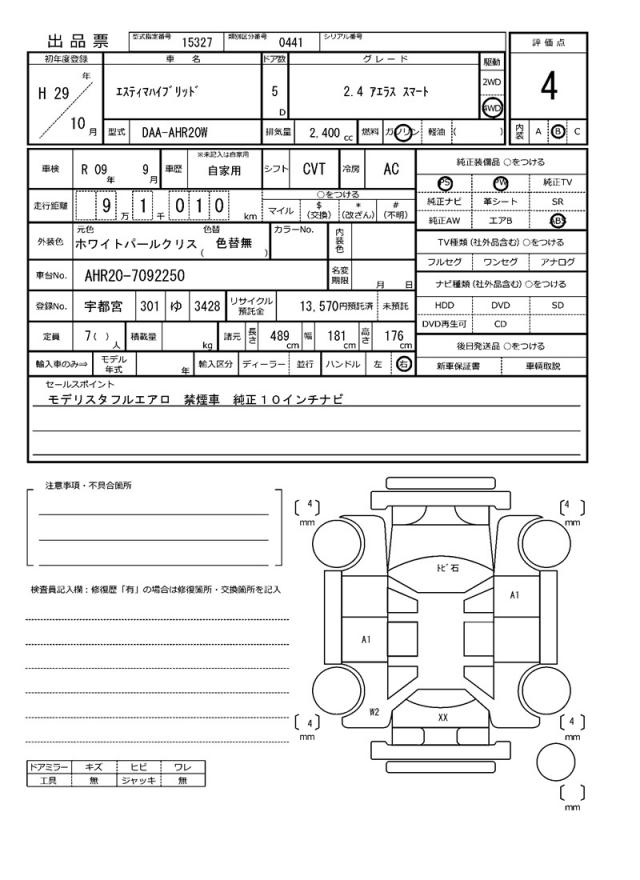 出品票 型式指定番号 15327 類別区分番号 0441 シリアル番号
評価点
4
初年度登録 車名 ドア数 グレード 駆動
H 29 年 10 月
ｴｽﾃｨﾏﾊｲﾌﾞﾘｯﾄﾞ 5 D 2.4 ｱｴﾗｽ ｽﾏｰﾄ
2WD
4WD
型式 DAA-AHR20W 排気量 2,400 cc 燃料 ガソリン 軽油 ( )
内装 A B C
車検 R 09 年 9 月 車歴 ※未記入は自家用 自家用 シフト CVT 冷房 AC
純正装備品 ○をつける
PS PW 純正TV
純正ナビ 革シート SR
純正AW エアB ABS
走行距離 9 万 1 千 0 1 0 km
○をつける
マイル $(交換) *(改ざん) #(不明)
外装色 元色 ホワイトパールクリス 色替 ( 色替無 ) カラーNo. 内装色
TV種類 (社外品含む) ○をつける
フルセグ ワンセグ アナログ
車台No. AHR20-7092250 名変期限 月 日
ナビ種類 (社外品含む) ○をつける
HDD DVD SD
DVD再生可 CD
登録No. 宇都宮 301 ゆ 3428 リサイクル預託金 13,570円預託済 未預託
定員 7( ) 人 積載量 kg 諸元 長さ 489 cm 幅 181 cm 高さ 176 cm
後日発送品 ○をつける
新車保証書 車輌取説
輸入車のみ⇒ モデル年式 年 輸入区分 ディーラー 並行 ハンドル 左 右
セールスポイント
モデリスタフルエアロ 禁煙車 純正１０インチナビ
注意事項・不具合箇所
検査員記入欄：修復歴「有」の場合は修復箇所・交換箇所を記入
ドアミラー キズ ヒビ ワレ
工具 無 ジャッキ 無
4 mm
4 mm
ﾄﾋﾞ石
A1
A1
W2
XX
4 mm
4 mm
mm